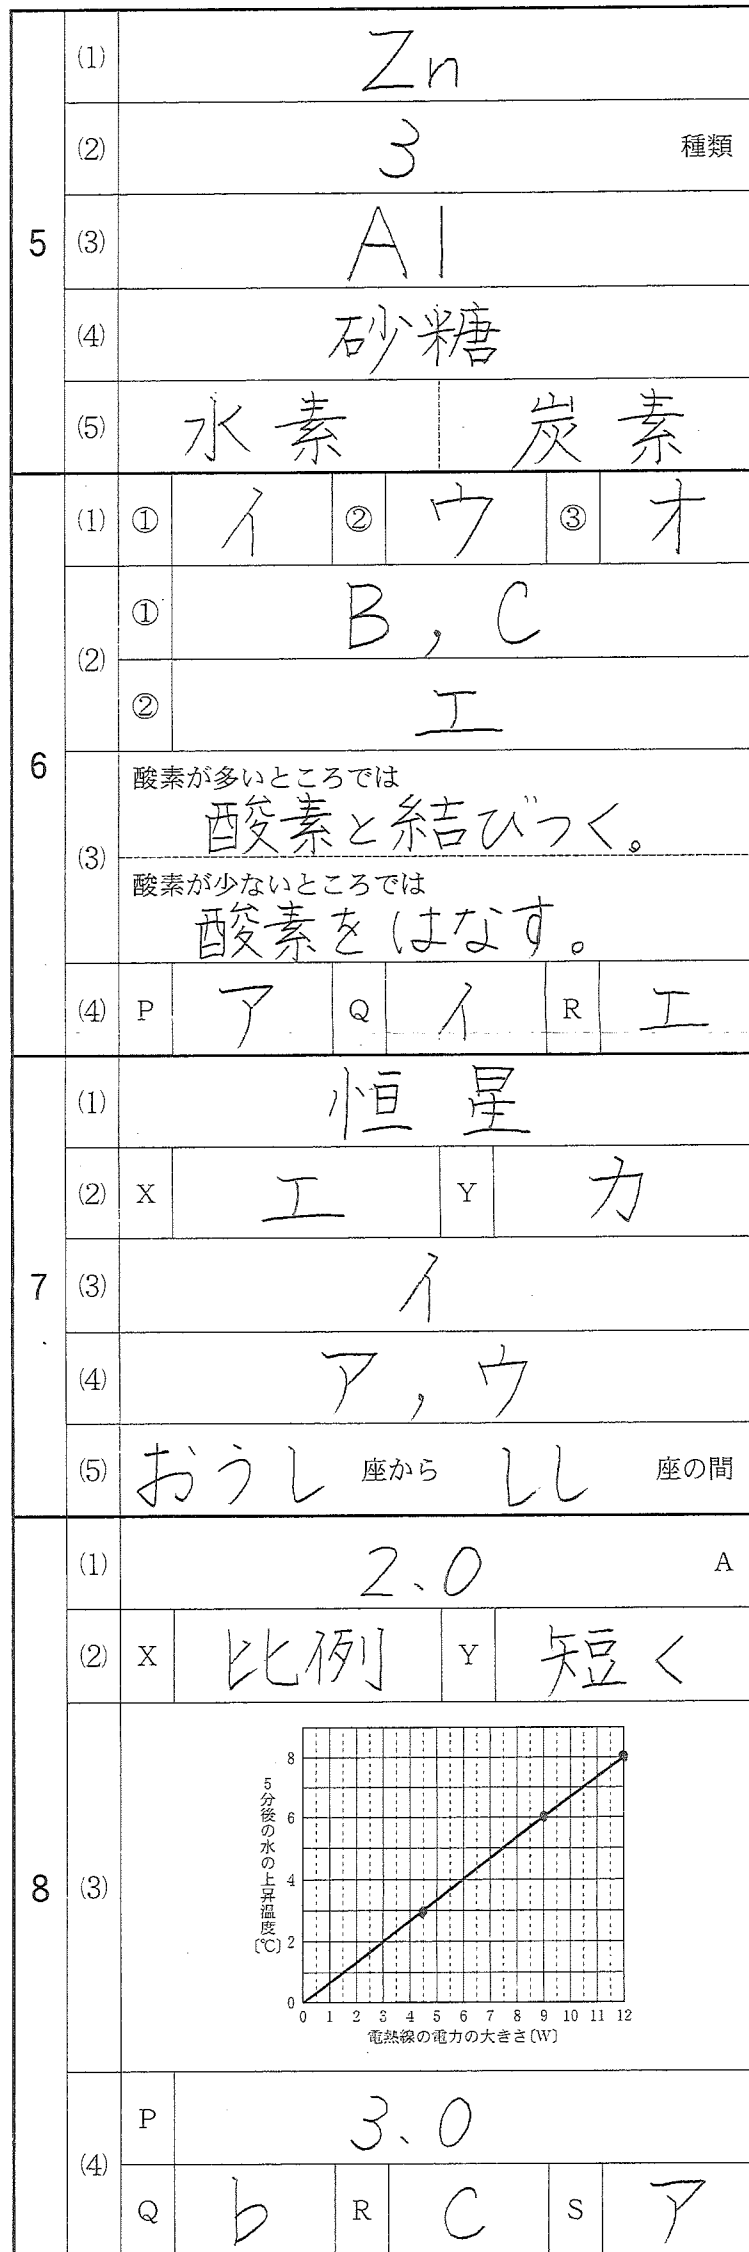 5
(1) Zn
(2) 3 種類
(3) Al
(4) 砂糖
(5) 水素 炭素
6
(1) ① イ ② ウ ③ オ
(2) ① B, C
② エ
(3) 酸素が多いところでは
酸素と結びつく。
酸素が少ないところでは
酸素をはなす。
(4) P ア Q イ R エ
7
(1) 恒星
(2) X エ Y カ
(3) イ
(4) ア, ウ
(5) おうし 座から しし 座の間
8
(1) 2、0 A
(2) X 比例 Y 短く
(3)
5分後の水の上昇温度〔℃〕
8
6
4
2
0
0 1 2 3 4 5 6 7 8 9 10 11 12
電熱線の電力の大きさ〔W〕
(4) P 3、0
Q b R C S ア